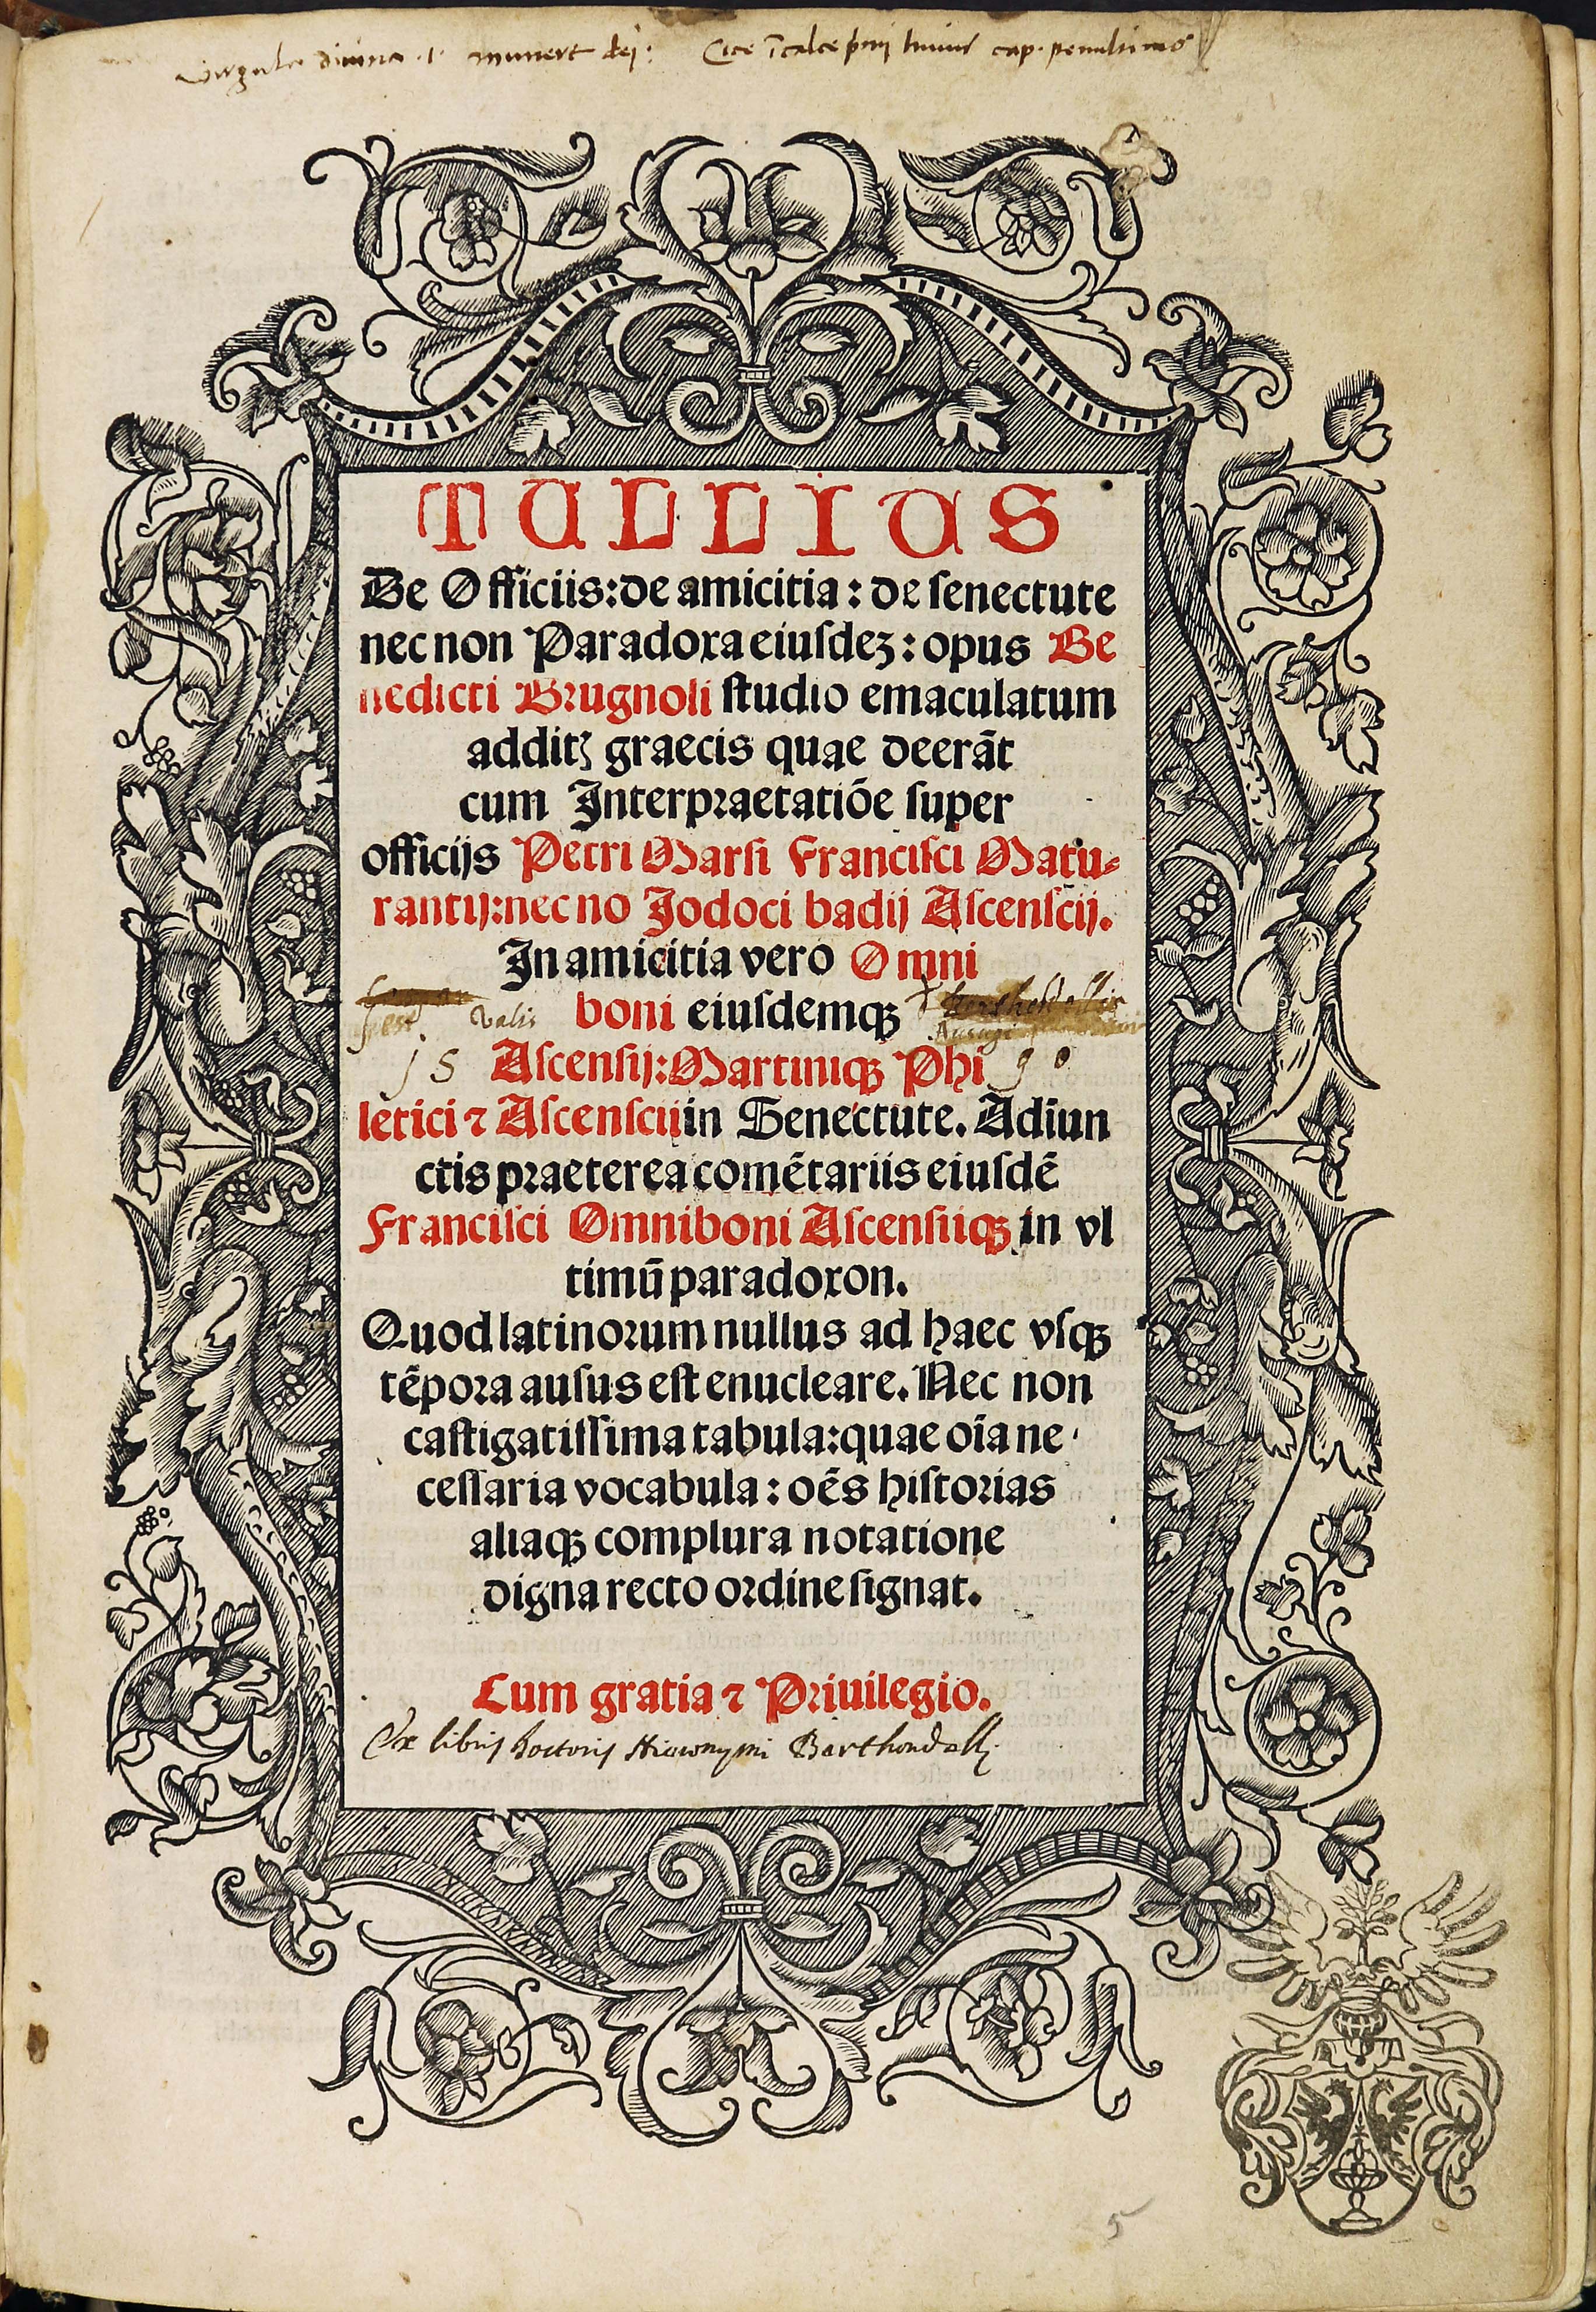 Virgula divina .i. munere dei: Cice ī calce pri huius cap. penultimo
TULLIUS
De Officiis: de amicitia: de senectute
nec non Paradoxa eiusdez: opus Be
nedicti Brugnoli studio emaculatum
additꝫ graecis quae deerāt
cum Interpraetatiōe super
officijs Petri Marsi Francisci Matu-
rantij: nec nō Jodoci badij Ascenscij.
In amicitia vero Omni
boni eiusdemqꝫ
Ascensij: Martiniqꝫ Phi
15 90
letici ⁊ Ascenscii in Senectute. Adiun
ctis praeterea comētariis eiusdē
Francisci Omniboni Ascensiiqꝫ in vl
timū paradoxon.
Quod latinorum nullus ad haec vsqꝫ
tēpora ausus est enucleare. Nec non
castigatissima tabula: quae oīa ne
cessaria vocabula: oēs historias
aliaqꝫ complura notatione
digna recto ordine signat.
Cum gratia ⁊ Priuilegio.
Ex libris doctoris Hieronymi
5